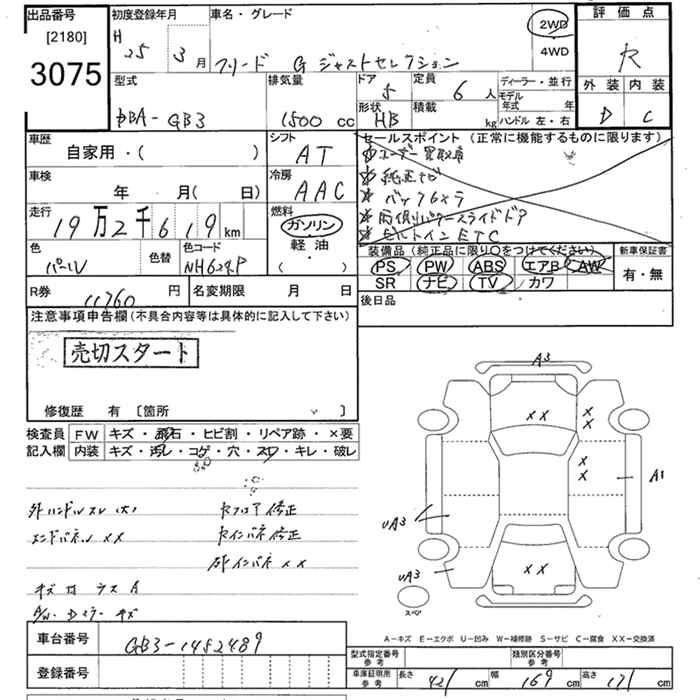 出品番号
[2180]
3075
初度登録年月
H 25 3月
車名・グレード
フリード G ジャストセレクション
2WD
4WD
評価点
R
外装 内装
D C
型式
DBA-GB3
排気量
1500 cc
ドア
5
定員
6人
ディーラー・並行
モデル
年式 年
形状
HB
積載
kg
ハンドル 左・右
車歴
自家用・( )
シフト
AT
車検
年 月( 日)
冷房
AAC
走行
19万2千619km
燃料
ガソリン
軽油
( ・ )
色
パール
色替
色コード
NH624P
R券
11760円
名変期限 月 日
セールスポイント(正常に機能するものに限ります)
☆純正ナビ
☆バック6×ラ
☆両側パワースライドドア
☆ビルトインETC
装備品(純正品に限り○をつけてください)
PS PW ABS エアB AW
SR ナビ TV カワ
新車保証書
有・無
後日品
注意事項申告欄(不具合内容等は具体的に記入して下さい)
売切スタート
修復歴 有 〔箇所 〕
検査員 FW キズ・飛石・ヒビ割・リペア跡・×要
記入欄 内装 キズ・汚レ・コゲ・穴・スレ・キレ・破レ
外ハンドルスレ(大)
エンドパネル XX
セフロア修正
セインパネ修正
右インパネ XX
キズ 凹 ラス A
A/W・Dミラー キズ
A3
XX
X
X
X
X
A1
UA3
UA3
XX
スペア
A-キズ E-エクボ U-凹み W-補修跡 S-サビ C-腐食 XX-交換済
車台番号
GB3-1452489
登録番号
型式指定番号
参考
類別区分番号
参考
車庫証明用
参考
長さ 421 cm
幅 169 cm
高さ 171 cm